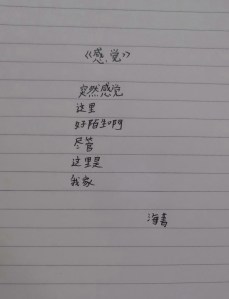 《感觉》
突然感觉
这里
好陌生啊
尽管
这里是
我家
海喜